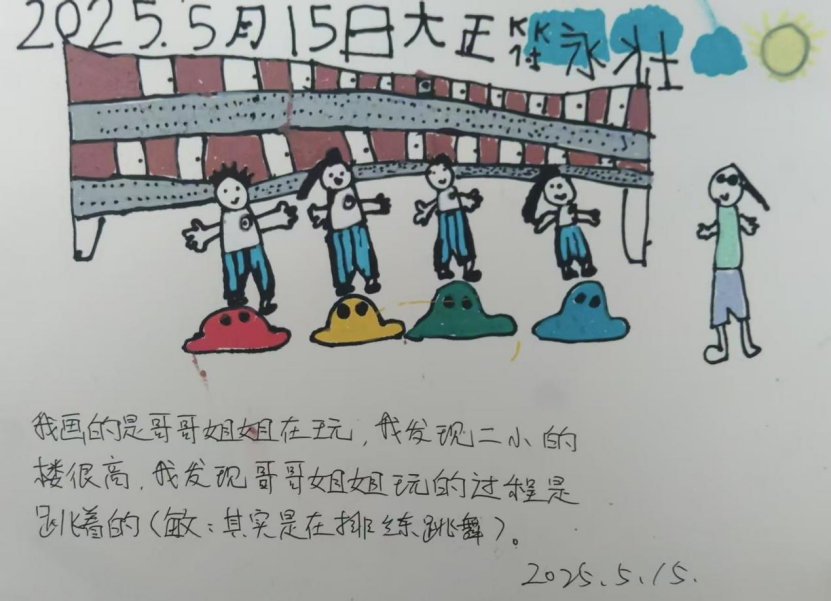 2025.5月15日大正 永壮
我画的是哥哥姐姐在玩,我发现二小的
楼很高,我发现哥哥姐姐玩的过程是
跳着的(敏:其实是在排练跳舞)。
2025.5.15.